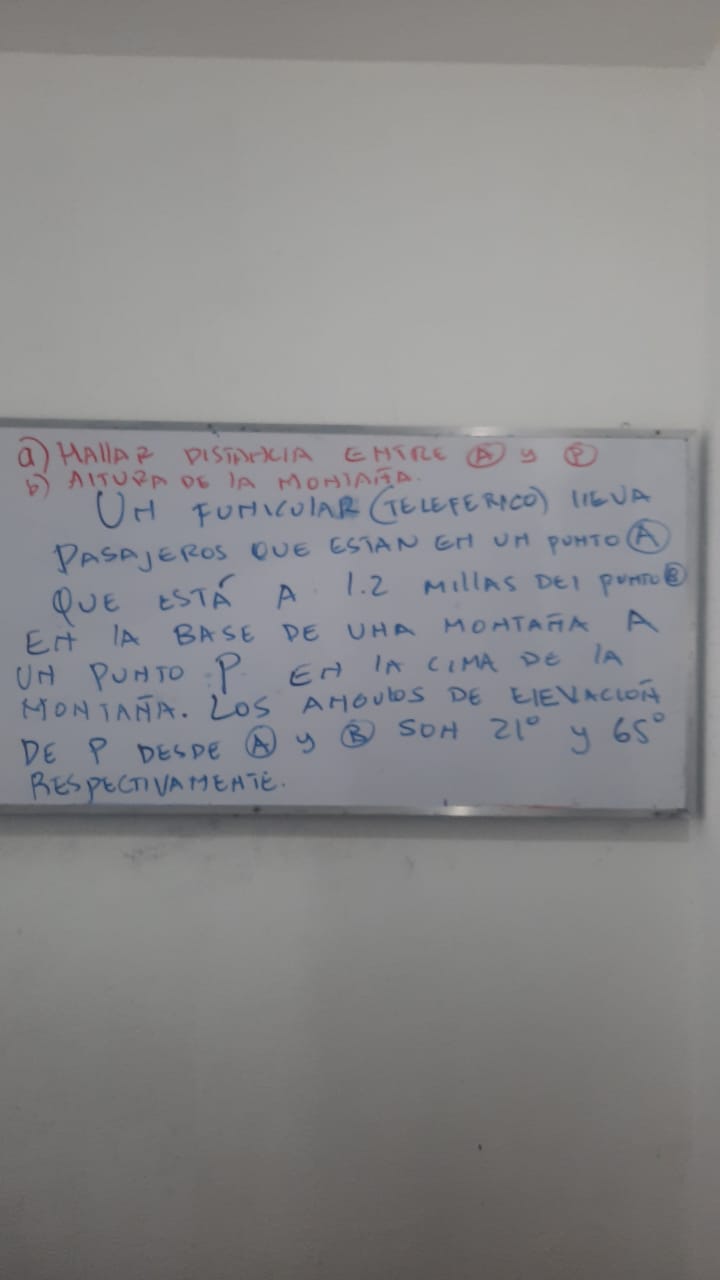 a) HALLAR DISTANCIA ENTRE Ⓐ y Ⓟ
b) ALTURA DE LA MONTAÑA.
UN FUNICULAR (TELEFERICO) LLEVA
PASAJEROS QUE ESTAN EN UN PUNTO Ⓐ
QUE ESTÁ A 1.2 MILLAS DEL PUNTO Ⓑ
EN LA BASE DE UNA MONTAÑA A
UN PUNTO P EN LA CIMA DE LA
MONTAÑA. LOS ANGULOS DE ELEVACION
DE P DESDE Ⓐ y Ⓑ SON 21° y 65°
RESPECTIVAMENTE.